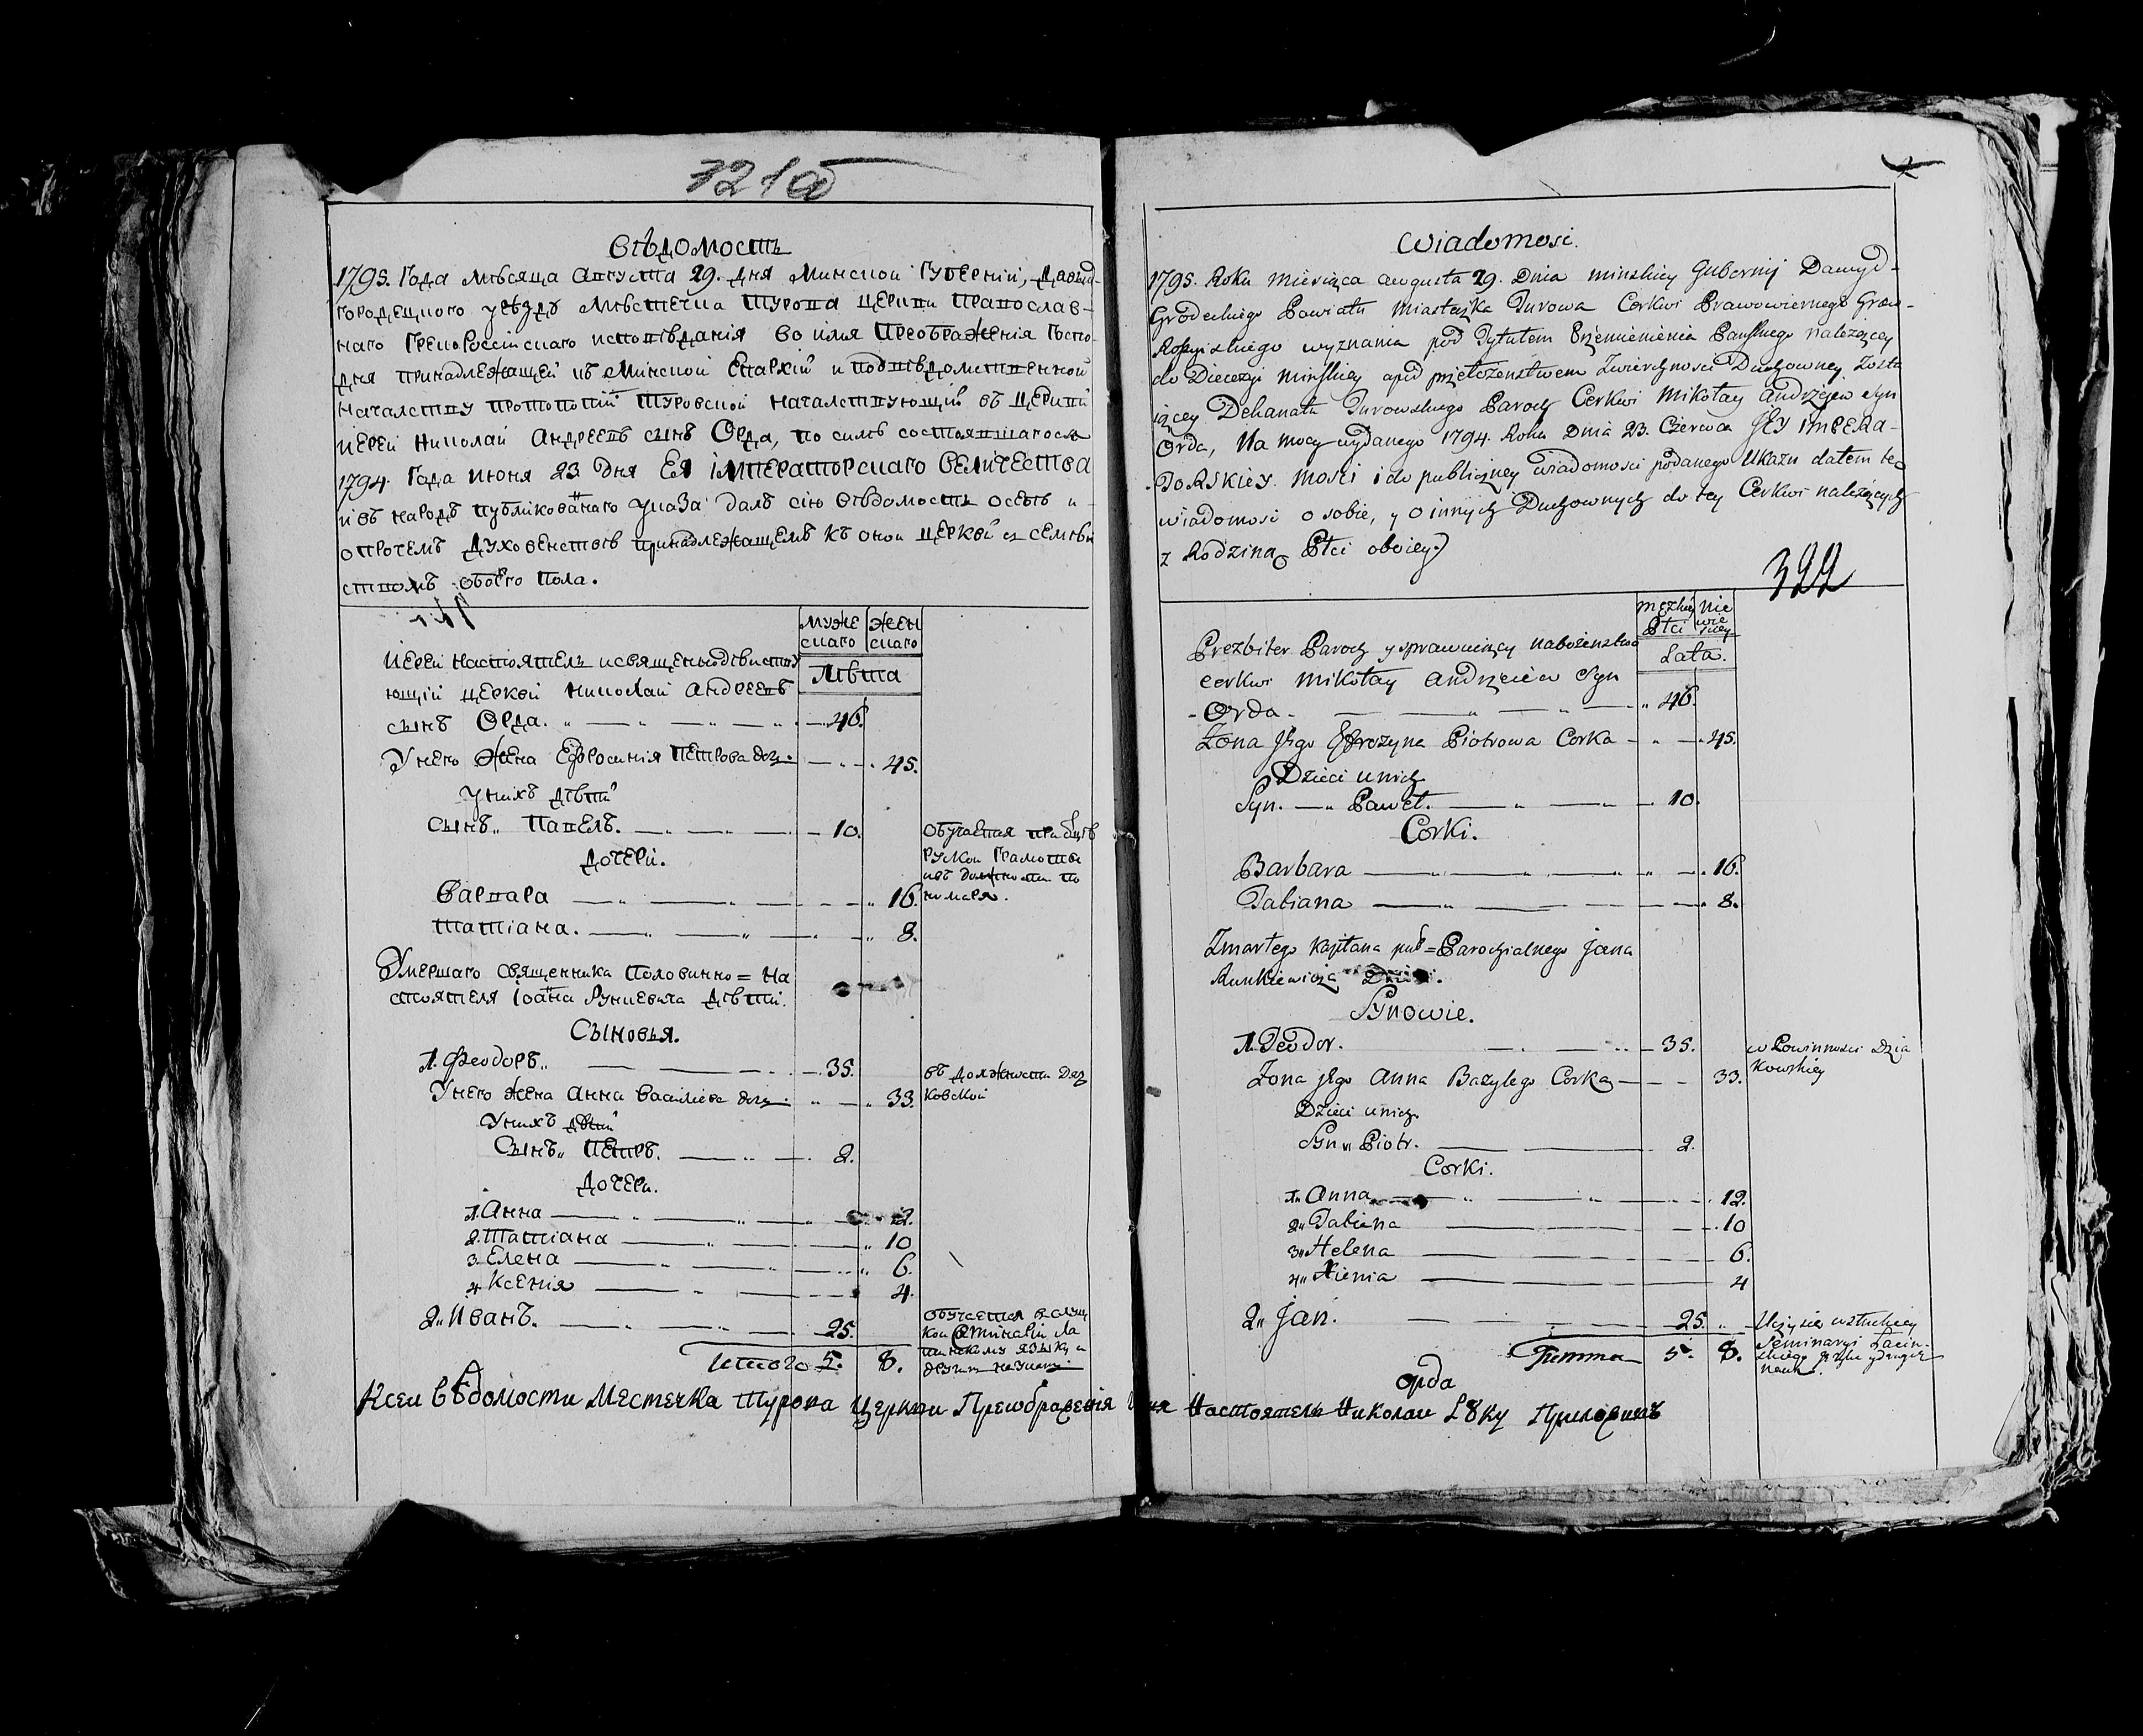 721а
Вѣдомость
1795. Года мѣсяца Августа 29. дня Минской Губернїи, Давид-
городецкого уѣзду мѣстечка Турова церкви православ-
наго Грекороссїйскаго исповѣданїя во имя Преображенїя Госпо-
дня принадлежащей къ Минской Епархїи и подвѣдомственной
началству протопопїи Туровской началствующїй въ церкви
иерей Николай Андреевъ сынъ Орда, по силѣ состоявшагося
1794. Года июня 23 дня Ея Імператорскаго Величества
и въ народъ публикованаго указа далъ сїю вѣдомость о себѣ и
о протчемъ духовенствѣ принадлежащемъ къ оной церкви съ семѣй
ствомъ обоего пола.
муже скаго
жен скаго
Лѣта
Иерей настоятель и священнодѣйству
ющїй церкви Николай Андреевъ
сынъ Орда. 46.
У него жена Ефросинїя Петрова доч: 45.
У нихъ дѣти
сынъ Павелъ. 10.
Обучается при отцѣ
руской грамотѣ
и въ должности по
номаря.
Дочери.
Варвара 16.
Татїана. 8.
Умершаго священника половинно = на
стоятеля Іоана Рункевича дѣти.
Сыновья.
1. Феодоръ 35.
въ должности дяч
ковской
У него жена Анна Василїева доч: 33.
У нихъ дѣти
Сынъ Петръ. 2.
Дочери.
1. Анна 12.
2. Татїана 10
3. Елена 6.
4 Ксенїя 4.
2. Иванъ. 25.
обучается в слуц
кой семинарїи ла
тинскому языку и
другим наукам.
итого 5. 8.
К сей вѣдомости местечка Турова церкви Преображенія Г~дня настоятель Николай Орда руку приложилъ
Wiadomosc.
1795. Roku miesiąca augusta 29. Dnia minskiey Gubernij Dawyd-
Grodeckiego Powiatu miasteczka Turowa Cerkwi Prawowiernego Greko-
Rossyiskiego wyznania pod Tytułem Przemienienia Pańskiego należącey
do Diecezyi minskiey a pod przełożenstwem Zwierzchnosci Duchowney Zosta
iącey Dekanatu Turowskiego Paroch Cerkwi Mikołay Andrzeiew syn
Orda, Na mocy wydanego 1794. Roku Dnia 23. Czerwca JEY IMPERA-
TORSKIEY. Mości i do publiczney wiadomosci podanego Ukazu dałem tę
wiadomosc o sobie, y o innych Duchownych do tey Cerkwi należących
z Rodziną Płci oboiey.
322
męzkiey Płci
nie wie sciey
Lata.
Prezbiter Paroch y sprawuiący nabożenstwo
cerkwi Mikołay Andrzeiew Syn
Orda 46.
Żona Jego Efrozyna Piotrowa Corka 45.
Dzieci u nich
Syn. Paweł. 10.
Corki.
Barbara 16.
Tatiana 8.
Zmarłego kapłana puł = Parochialnego Jana
Runkiewicza Dzieci.
Synowie.
1. Teodor. 35.
w Powinnosci Dzia
kowskiey
Żona Jego Anna Bazylego Corka 33.
Dzieci u nich
Syn Piotr. 2.
Corki.
1. Anna 12.
2. Tatiana 10
3. Helena 6.
4. Xienia 4
2. Jan. 25.
Uczy się w słuckiey
Seminaryi Łacin-
skiego Języka y drugich
nauk.
Summa 5. 8.